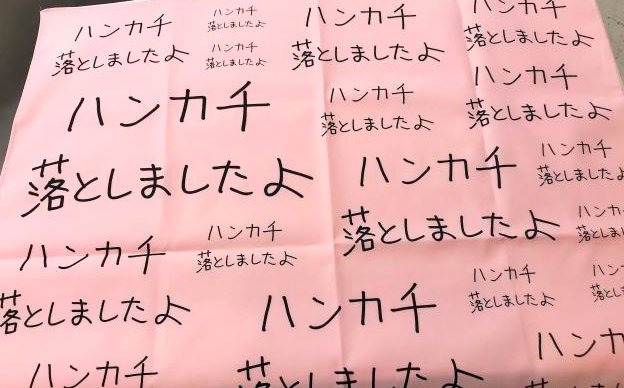 ハンカチ
落としましたよ
ハンカチ
落としましたよ
ハンカチ
落としましたよ
ハンカチ
落としましたよ
ハンカチ
落としましたよ
ハンカチ
落としましたよ
ハンカチ
落としましたよ
ハンカチ
落としましたよ
ハンカチ
落としましたよ
ハンカチ
落としましたよ
ハンカチ
落としましたよ
ハンカチ
落としましたよ
ハンカチ
落としましたよ
ハンカチ
落としました
ハンカチ
落としましたよ
ハンカチ
ハンカチ